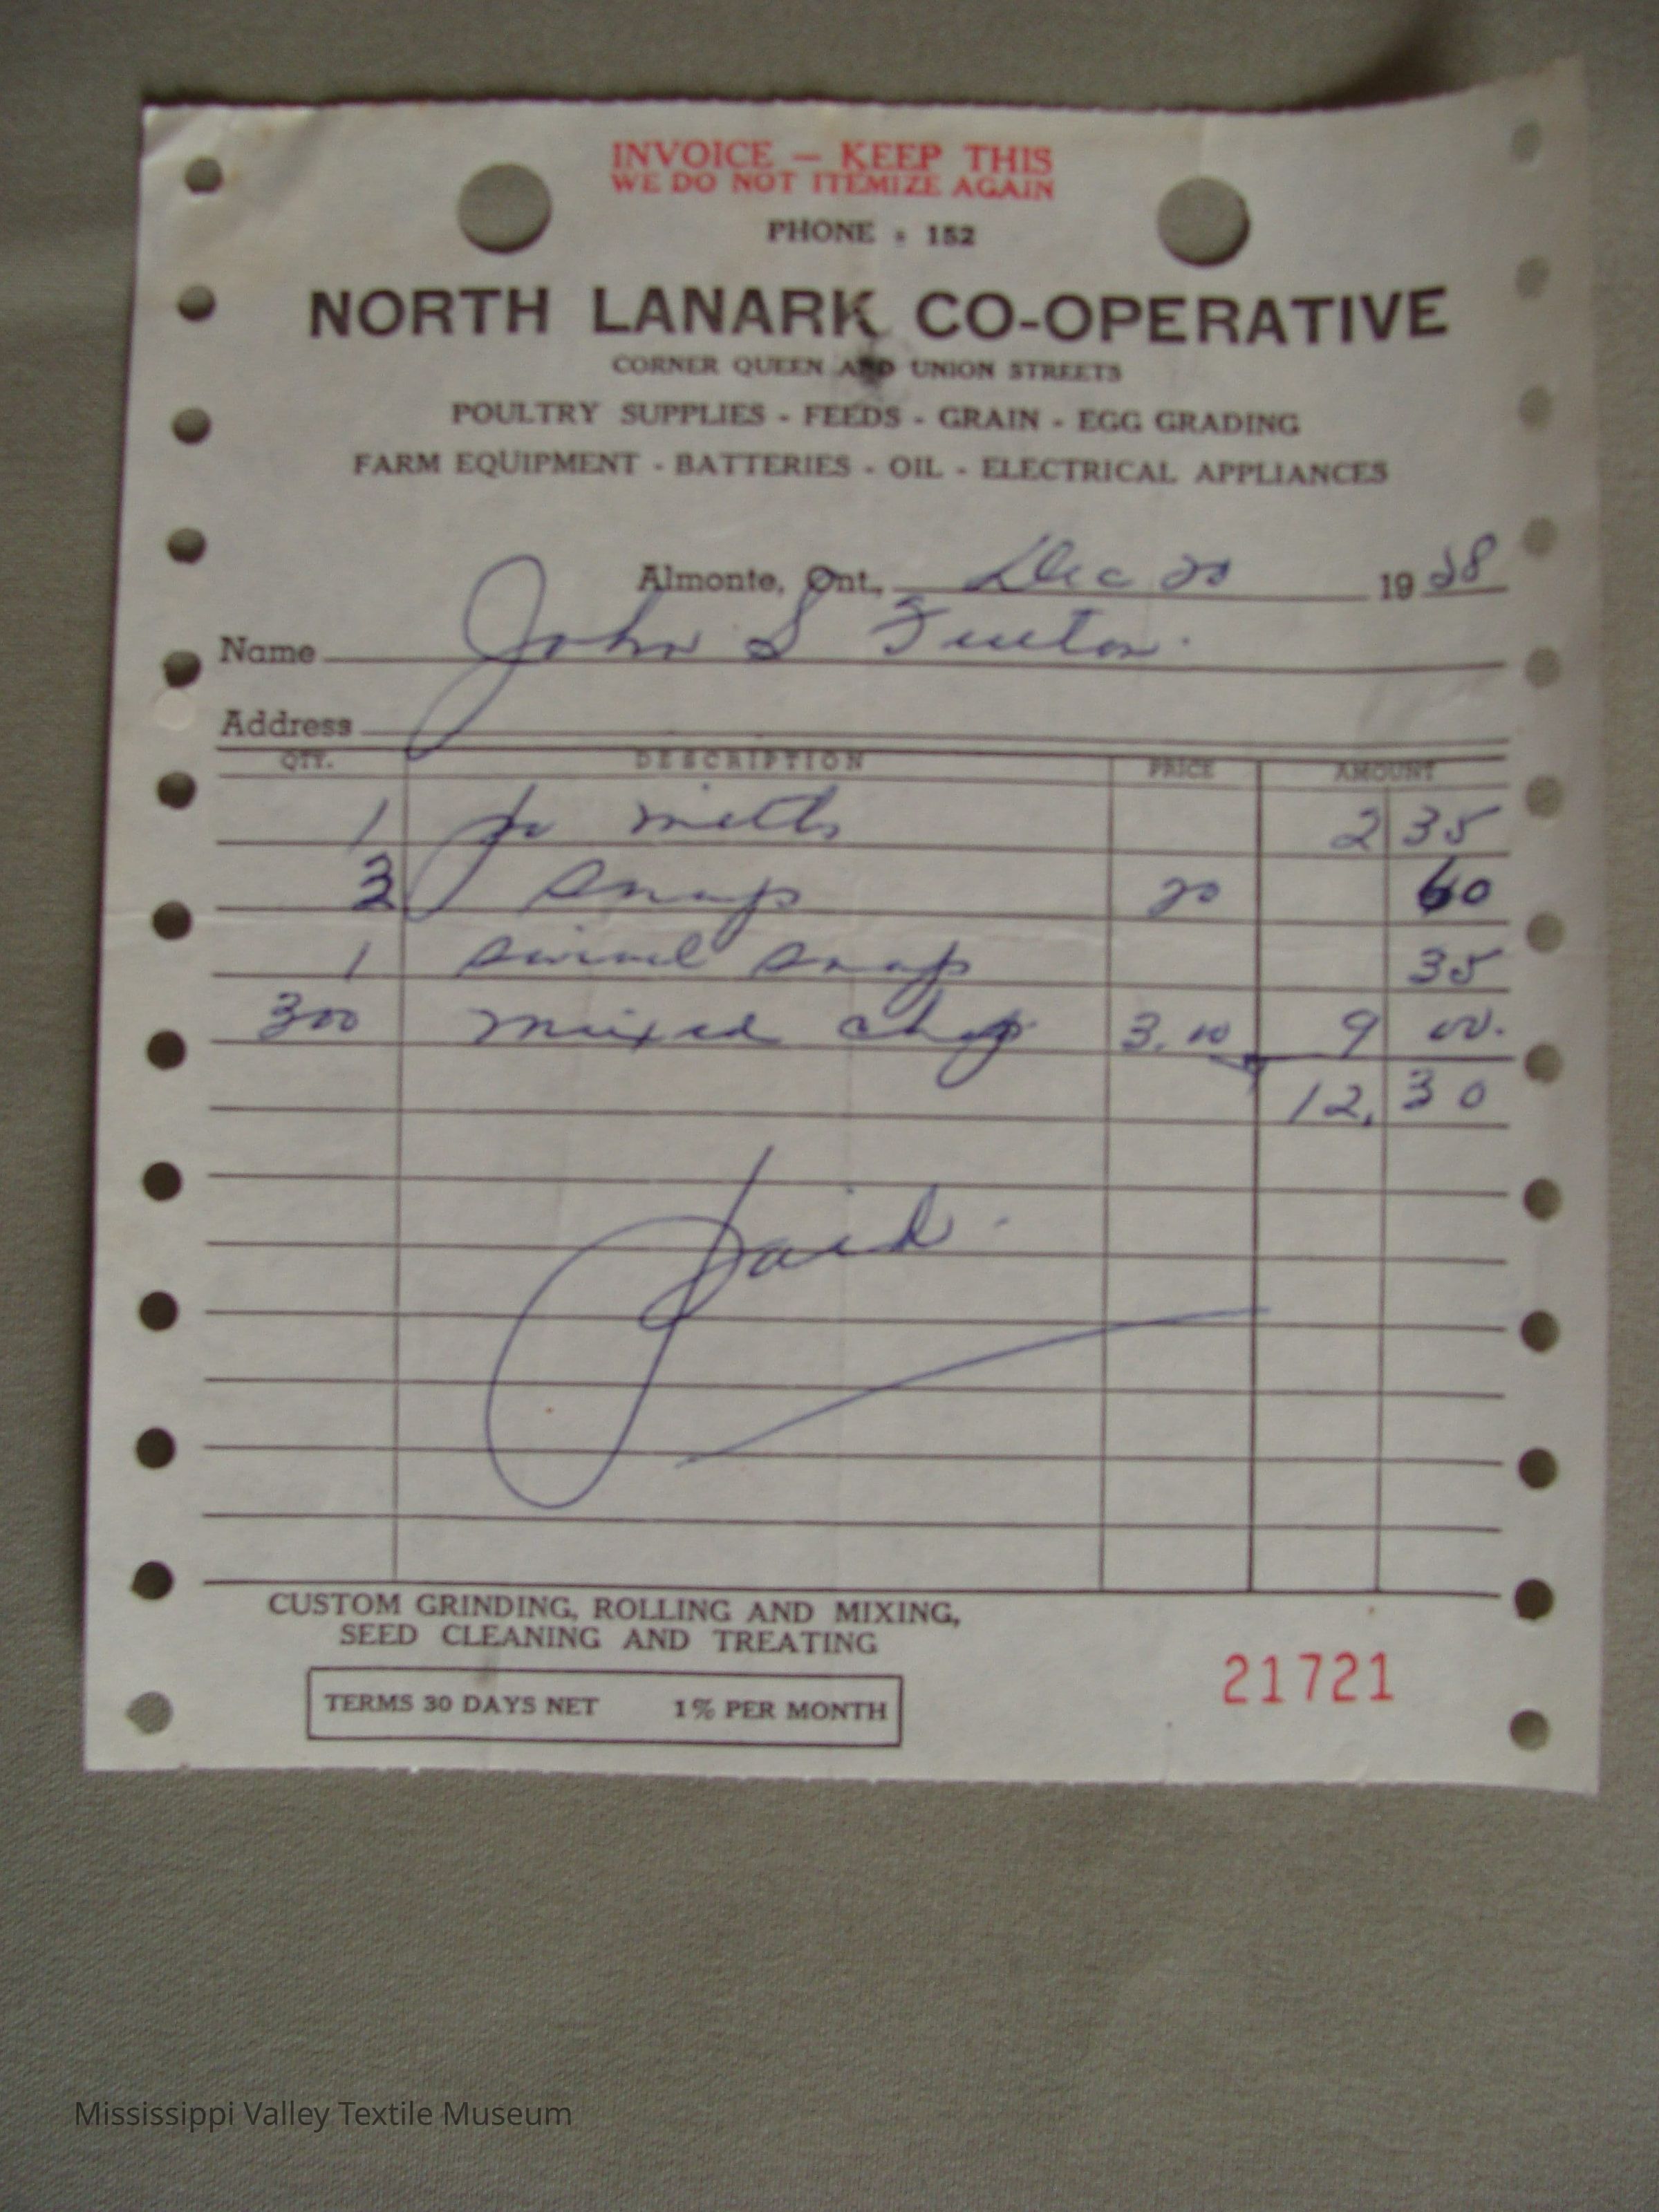 INVOICE — KEEP THIS
WE DO NOT ITEMIZE AGAIN
PHONE - 152
NORTH LANARK CO-OPERATIVE
CORNER QUEEN AND UNION STREETS
POULTRY SUPPLIES - FEEDS - GRAIN - EGG GRADING
FARM EQUIPMENT - BATTERIES - OIL - ELECTRICAL APPLIANCES
Almonte, Ont., Dec 20 1958
Name John S
Address
QTY. DESCRIPTION PRICE AMOUNT
1 pr mitts 2 35
3 snap 20 60
1 swivel snap 35
300 mixed chop 3.00 9 00.
12. 30
Paid.
CUSTOM GRINDING, ROLLING AND MIXING,
SEED CLEANING AND TREATING
TERMS 30 DAYS NET 1% PER MONTH
21721
Mississippi Valley Textile Museum